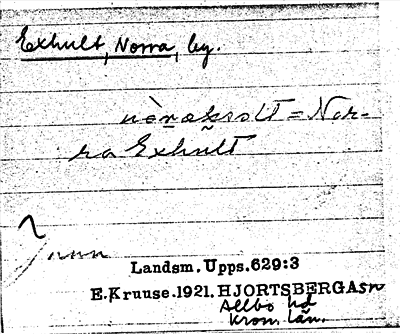 Exhult, Norra, by.
= Nor-
ra Exhult
Landsm. Upps. 629:3
E. Kruuse. 1921. HJORTSBERGA sn
Allbo hd
Kron. län.